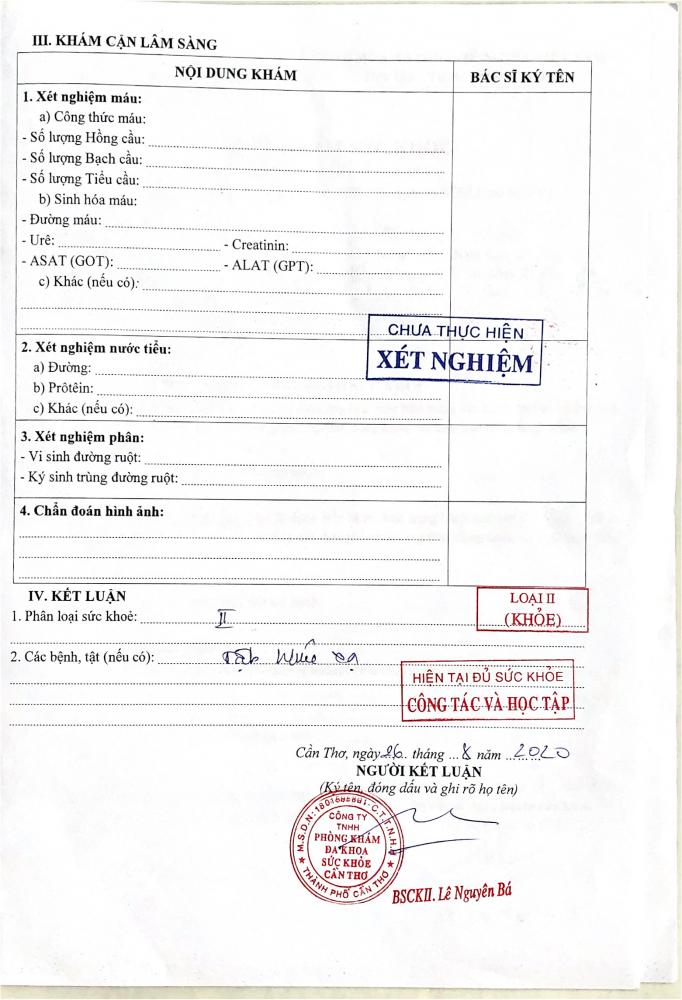 III. KHÁM CẬN LÂM SÀNG
NỘI DUNG KHÁM BÁC SĨ KÝ TÊN
1. Xét nghiệm máu:
a) Công thức máu:
- Số lượng Hồng cầu:
- Số lượng Bạch cầu:
- Số lượng Tiểu cầu:
b) Sinh hóa máu:
- Đường máu:
- Urê: - Creatinin:
- ASAT (GOT): - ALAT (GPT):
c) Khác (nếu có):
CHƯA THỰC HIỆN
XÉT NGHIỆM
2. Xét nghiệm nước tiểu:
a) Đường:
b) Prôtêin:
c) Khác (nếu có):
3. Xét nghiệm phân:
- Vi sinh đường ruột:
- Ký sinh trùng đường ruột:
4. Chẩn đoán hình ảnh:
IV. KẾT LUẬN
LOẠI II
(KHỎE)
1. Phân loại sức khoẻ: II
2. Các bệnh, tật (nếu có): Tật khúc xạ
HIỆN TẠI ĐỦ SỨC KHỎE
CÔNG TÁC VÀ HỌC TẬP
Cần Thơ, ngày 26 tháng 8 năm 2020
NGƯỜI KẾT LUẬN
(Ký tên, đóng dấu và ghi rõ họ tên)
CÔNG TY
TNHH
PHÒNG KHÁM
ĐA KHOA
SỨC KHỎE
CẦN THƠ
THÀNH PHỐ CẦN THƠ
BSCKII. Lê Nguyên Bá